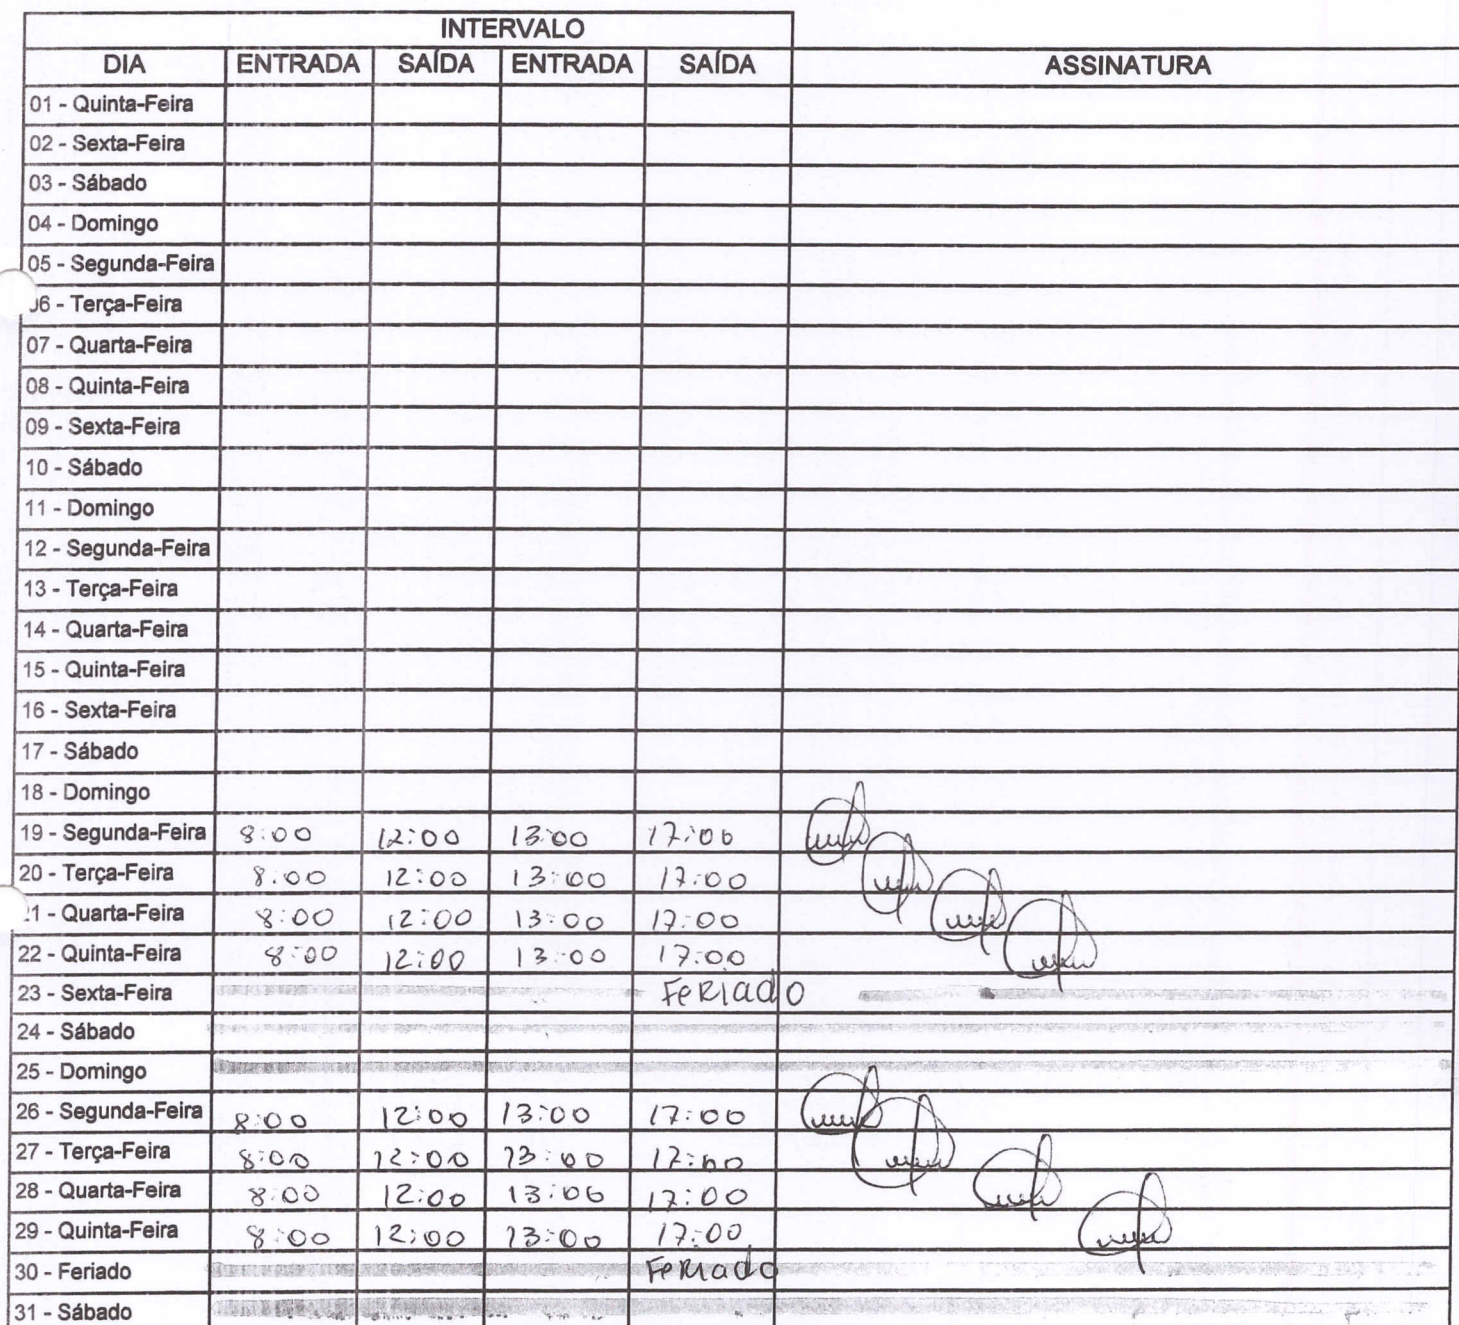 INTERVALO
DIA ENTRADA SAÍDA ENTRADA SAÍDA ASSINATURA
01 - Quinta-Feira
02 - Sexta-Feira
03 - Sábado
04 - Domingo
05 - Segunda-Feira
06 - Terça-Feira
07 - Quarta-Feira
08 - Quinta-Feira
09 - Sexta-Feira
10 - Sábado
11 - Domingo
12 - Segunda-Feira
13 - Terça-Feira
14 - Quarta-Feira
15 - Quinta-Feira
16 - Sexta-Feira
17 - Sábado
18 - Domingo
19 - Segunda-Feira 8:00 12:00 13:00 17:00
20 - Terça-Feira 8:00 12:00 13:00 17:00
21 - Quarta-Feira 8:00 12:00 13:00 17:00
22 - Quinta-Feira 8:00 12:00 13:00 17:00
23 - Sexta-Feira Feriado
24 - Sábado
25 - Domingo
26 - Segunda-Feira 8:00 12:00 13:00 17:00
27 - Terça-Feira 8:00 12:00 13:00 17:00
28 - Quarta-Feira 8:00 12:00 13:00 17:00
29 - Quinta-Feira 8:00 12:00 13:00 17:00
30 - Feriado Feriado
31 - Sábado